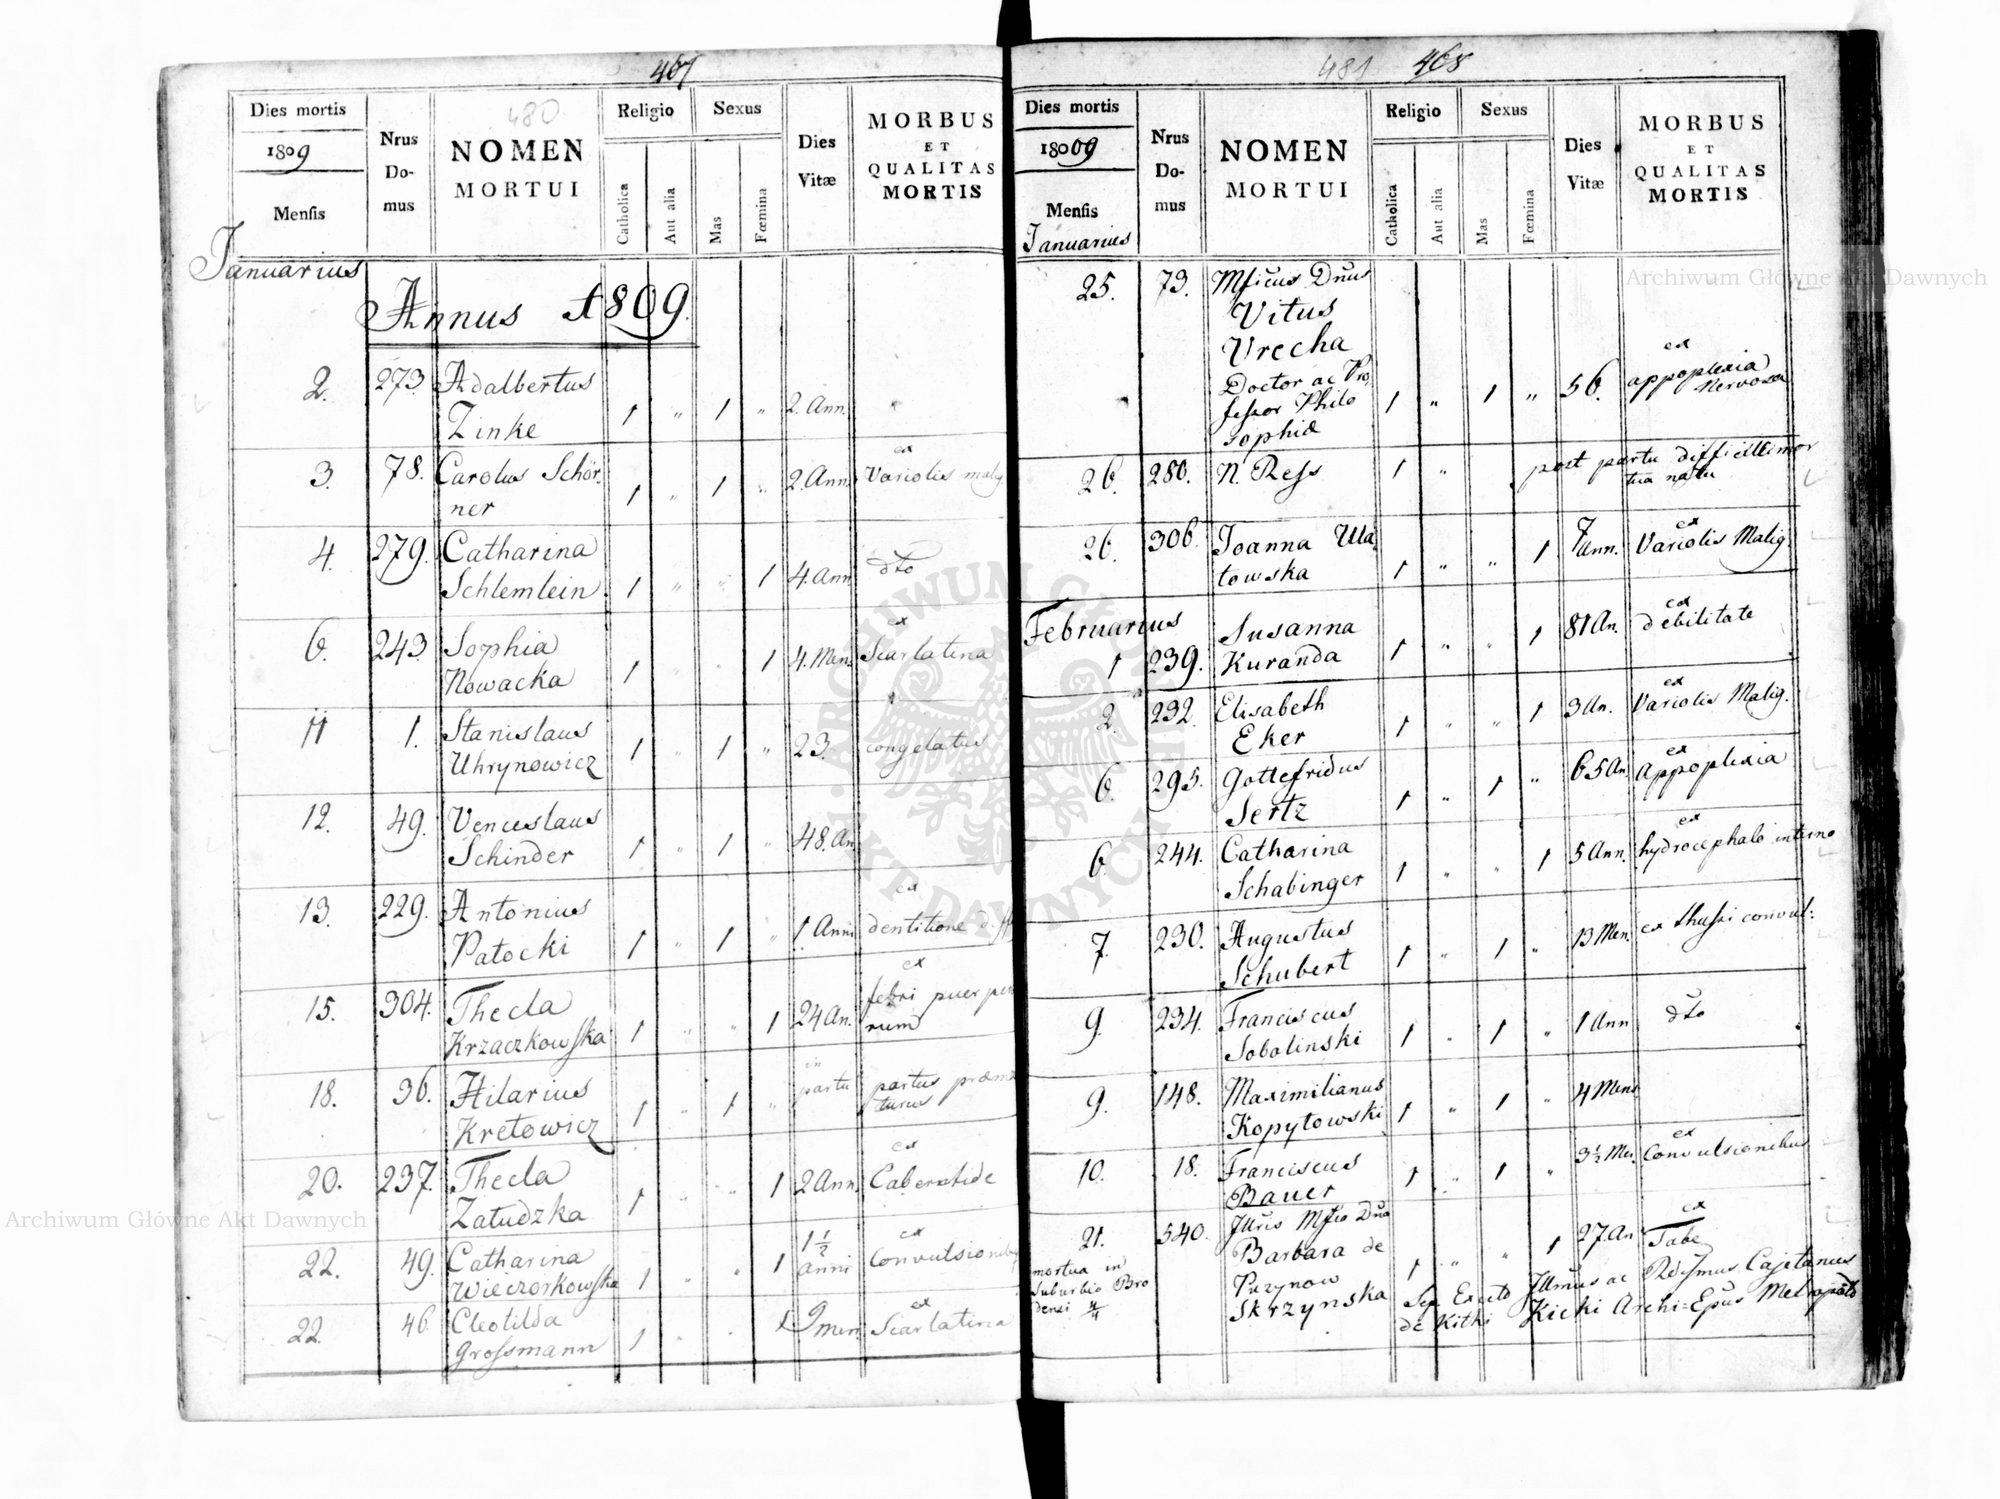 467
480
Dies mortis
1809
Mensis
Januarius
Nrus
Do-
mus
NOMEN
MORTUI
Religio
Catholica
Aut alia
Sexus
Mas
Fœmina
Dies
Vitæ
MORBUS
ET
QUALITAS
MORTIS
Annus 1809.
2. 273 Adalbertus
Zinke 1 " 1 " 2. Ann.
3. 78. Carolus Schör
ner 1 " 1 " 2. Ann. ex
Variolis malig
4. 279. Catharina
Schlemlein 1 " " 1 4. Ann dto
6. 243 Sophia
Nowacka 1 " " 1 4. Men. ex
Scarlatina
11 1. Stanislaus
Uhrynowicz 1 " 1 " 23. congelatus
12. 49. Venceslaus
Schinder 1 " 1 " 48. An.
13. 229. Antonius
Patocki 1 " 1 " 1 Anni ex
dentitione diff
15. 304. Thecla
Krzaczkowska 1 " " 1 24 An. ex
febri puerpe
rum
18. 36. Hilarius
Kretowicz 1 " 1 " in
partu partus præma
turus
20. 237. Thecla
Zatudzka 1 " " 1 2 Ann. ex
22. 49. Catharina
Wieczorkowska 1 " " 1 1 1/2
anni ex
Convulsionibus
22. 46 Cleotilda
Grossmann 1 " " 1 9 men. ex
Scarlatina
481 468
Dies mortis
1809
Mensis
Januarius
Nrus
Do-
mus
NOMEN
MORTUI
Religio
Catholica
Aut alia
Sexus
Mas
Fœmina
Dies
Vitæ
MORBUS
ET
QUALITAS
MORTIS
25. 73. Mficus Dnus
Vitus
Vrecha
Doctor ac Pro
fessor Philo
sophiæ 1 " 1 " 56. ex
appoplexia
Nervosa
26. 280. N. Ress 1 " post partu difficili mor
tua natu
26. 306. Joanna Ula
towska 1 " " 1 7
Ann. ex
Variolis Malig.
Februarius
1 239. Susanna
Kuranda 1 " " 1 81 An. ex
debilitate
2. 232. Elisabeth
Eker 1 " " 1 3 An. ex
Variolis Malig.
6. 295. Gottefridus
Sertz 1 " 1 " 65 An. ex
Appoplexia
6. 244. Catharina
Schabinger 1 " " 1 5 Ann. ex
hydrocephalo interno
7. 230. Augustus
Schubert 1 " 1 " 13 Men. ex thussi convul:
9. 234. Franciscus
Sobolinski 1 " 1 " 1 Ann dto
9. 148. Maximilianus
Kopytowski 1 " 1 " 4 Mens
10. 18. Franciscus
Bauer 1 " 1 " 3 1/2 Men. ex
Convulsionibus
21. 540. Illris Mfca Dna
Barbara de
Skrzynska 1 " " 1 27 An ex
Tabe
mortua in
Suburbio Bro
densi 4/4
Sep. Illmus ac Rdssmus Cajetanus
de Kitki Kicki Archi=Epus Metropolit
Archiwum Główne Akt Dawnych
Archiwum Główne Akt Dawnych
ARCHIWUM GŁÓWNE AKT DAWNYCH